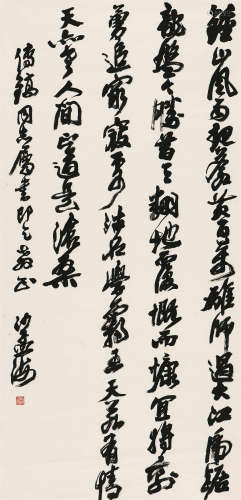 鍾山風雨起蒼黃百萬雄師過大江虎踞
龍盤今勝昔天翻地覆慨而慷宜將剩
勇追窮寇不可沽名學霸王天若有情
天亦老人間正道是滄桑
同志屬書即乞教正
沙孟海